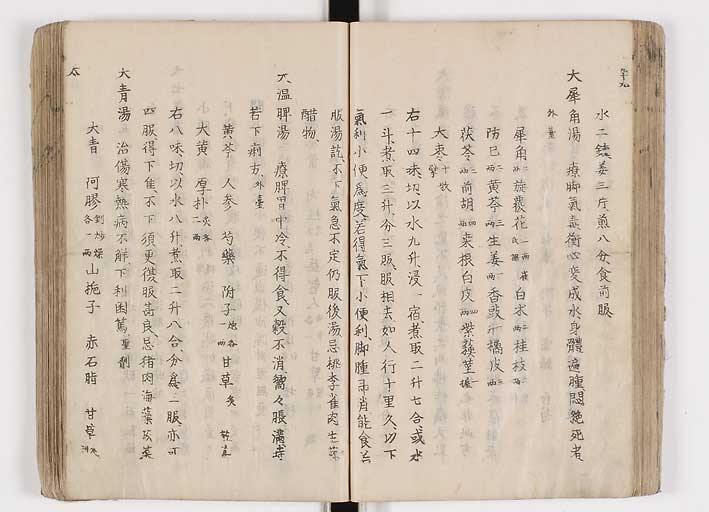 水二鐘姜三片煎八分食前服
大犀角湯 療脚氣毒衝心変成水身體遍腫悶絶死者
外臺
犀角 旋覆花 白朮二兩 桂枝二兩
防己二兩 黄芩三兩 生姜一兩 香豉 橘皮三兩
茯苓三兩 前胡四兩 桑根白皮四兩 紫蘇莖
大枣十枚擘
右十四味切以水九升浸一宿煮取二升七合或水
一斗煮取三升分三服服相去如人行十里久以下
氣利小便為度若得氣下小便利脚腫即消能食若
服湯訖不下氣急不定仍服後湯忌桃李雀肉生菜
醋物
大温脾湯 療脾胃中冷不得食又穀不消嚮々脹滿時
苦下痢方外臺
黄芩 人参 芍薬 附子炮各一兩 甘草炙 乾姜
大黄 厚朴炙各二兩
右八味切以水八升煮取二升八合分為三服亦可
四服得下佳不下須更復服甚良忌猪肉海藻菘菜
大青湯 治傷寒熱病不解下利困篤聖劑
大青 阿膠剉炒燥各一兩 山梔子 赤石脂 甘草